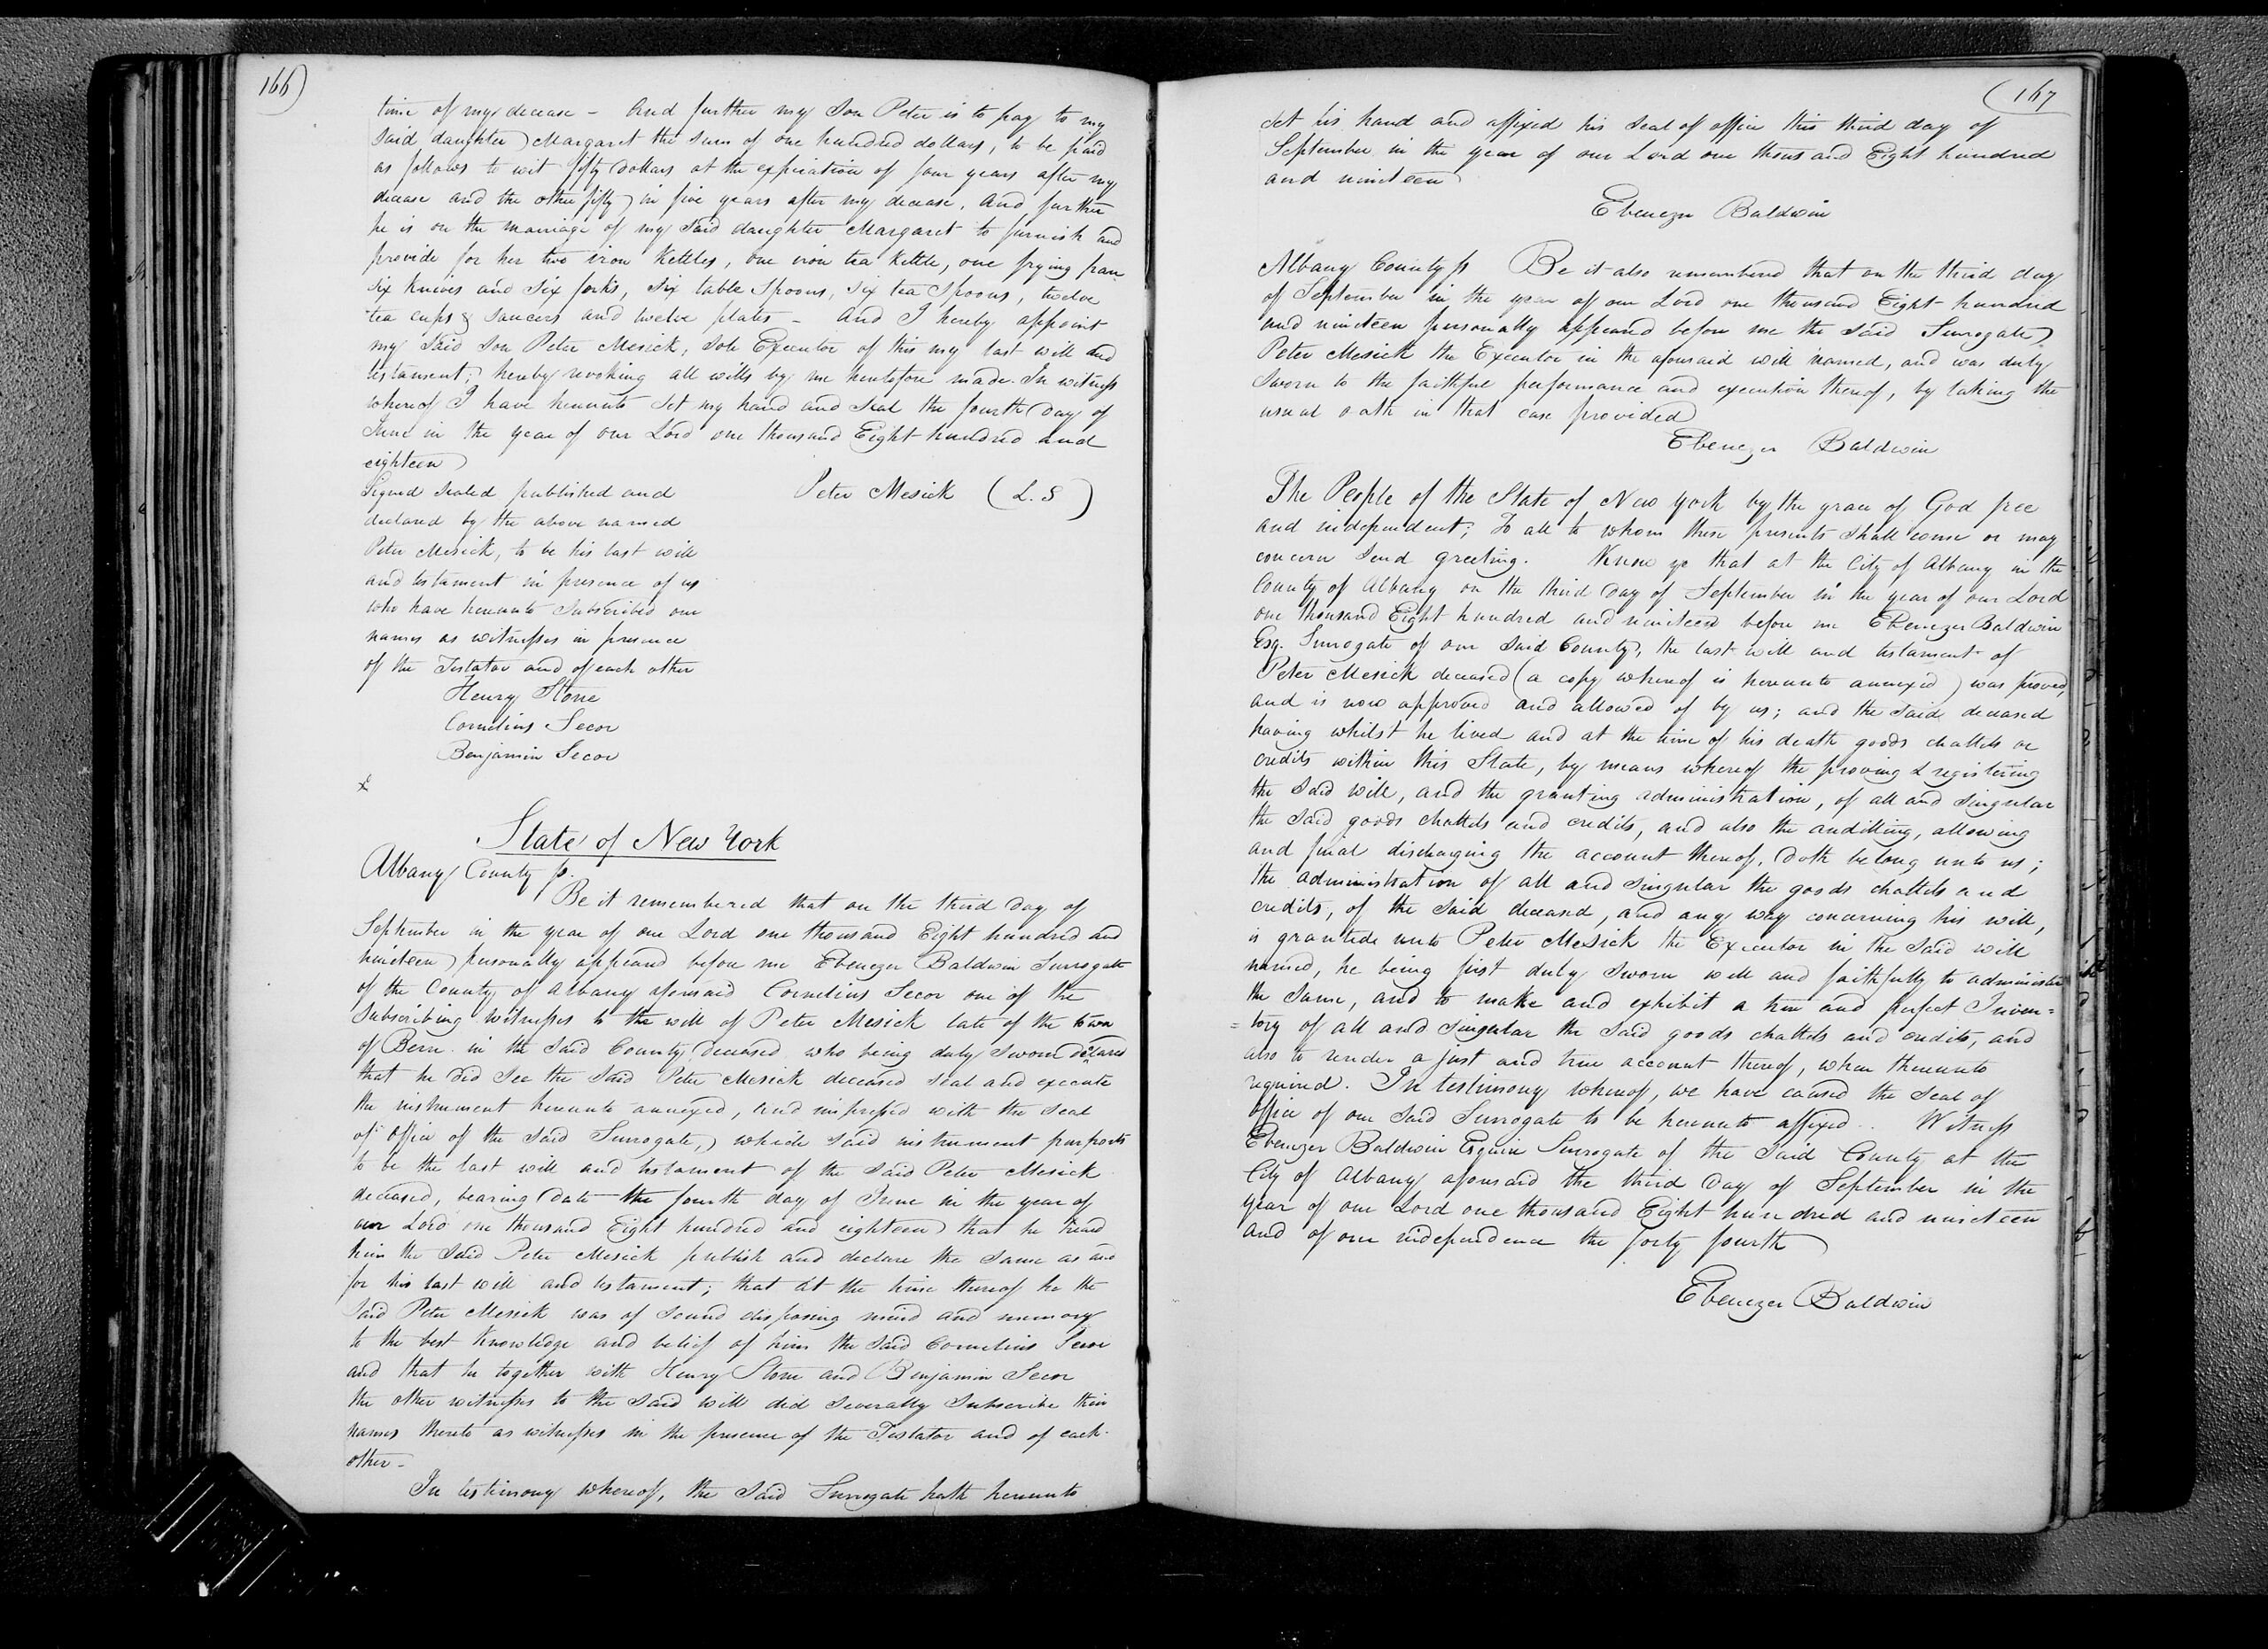 166)
time of my decease - And further my Son Peter is to pay to my
said daughter Margaret the sum of one hundred dollars, to be paid
as follows to wit fifty Dollars at the expiration of four years after my
decease and the other fifty in five years after my decease. And further
he is on the marriage of my said daughter Margaret to furnish and
provide for her two iron Kettles, one iron tea Kettle, one frying pan
six knives and six forks, six table Spoons, six tea Spoons, twelve
tea cups & saucers and twelve plates - And I hereby appoint
my said Son Peter Mesick, Sole Executor of this my last will and
testament; hereby revoking all wills by me heretofore made. In witness
whereof I have hereunto set my hand and seal the fourth Day of
June in the year of our Lord one thousand Eight hundred and
eighteen
Signed sealed published and
Peter Mesick (L.S)
declared by the above named
Peter Mesick, to be his last will
and testament in presence of us
who have hereunto Subscribed our
names as witnesses in presence
of the Testator and of each other
Henry Stone
Cornelius Secor
Benjamin Secor
x
State of New York
Albany County ss.
Be it remembered that on the third Day of
September in the year of our Lord one thousand Eight hundred and
nineteen personally appeared before me Ebenezer Baldwin Surrogate
of the County of Albany aforesaid Cornelius Secor one of the
Subscribing witnesses to the will of Peter Mesick late of the town
of Bern in the said County Deceased who being duly sworn declared
that he did see the said Peter Mesick deceased seal and execute
the instrument hereunto annexed, and impressed with the seal
of office of the said Surrogate, which said instrument purports
to be the last will and testament of the said Peter Mesick
deceased, bearing Date the fourth day of June in the year of
our Lord one thousand Eight hundred and eighteen that he heard
him the said Peter Mesick publish and declare the same as and
for his last will and testament; that at the time thereof he the
said Peter Mesick was of sound disposing mind and memory
to the best knowledge and belief of him the said Cornelius Secor
and that he together with Henry Stone and Benjamin Secor
the other witnesses to the said will did severally subscribe their
names thereto as witnesses in the presence of the Testator and of each
other -
In testimony whereof, the said Surrogate hath hereunto
(167
set his hand and affixed his seal of office this third day of
September in the year of our Lord one thousand Eight hundred
and nineteen
Ebenezer Baldwin
Albany County ss Be it also remembered that on the third day
of September in the year of our Lord one thousand Eight hundred
and nineteen personally appeared before me the said Surrogate
Peter Mesick the Executor in the aforesaid will named, and was duly
sworn to the faithful performance and execution thereof, by taking the
usual oath in that case provided
Ebenezer Baldwin
The People of the State of New York by the grace of God free
and independent; To all to whom these presents shall come or may
concern Send greeting. Know ye that at the City of Albany in the
County of Albany on the third Day of September in the year of our Lord
one thousand Eight hundred and nineteen before me Ebenezer Baldwin
Esq. Surrogate of our said County, the last will and testament of
Peter Mesick deceased (a copy whereof is hereunto annexed) was proved,
and is now approved and allowed of by us; and the said deceased
having whilst he lived and at the time of his death goods chattels or
credits within this State, by means whereof the proving & registering
the said will, and the granting administration, of all and singular
the said goods chattels and credits, and also the auditting, allowing
and final discharging the account thereof, doth belong unto us;
the administration of all and singular the goods chattels and
credits, of the said deceased, and any way concerning his will,
is grantede unto Peter Mesick the Executor in the said will
named, he being first duly sworn well and faithfully to administer
the same, and to make and exhibit a true and perfect Inven=
=tory of all and singular the said goods chattels and credits, and
also to render a just and true account thereof, when thereunto
required. In testimony whereof, we have caused the seal of
office of our said Surrogate to be hereunto affixed.. Witness
Ebenezer Baldwin Esquire Surrogate of the said County at the
City of Albany aforesaid the third Day of September in the
year of our Lord one thousand Eight hundred and nineteen
and of our independence the forty fourth
Ebenezer Baldwin